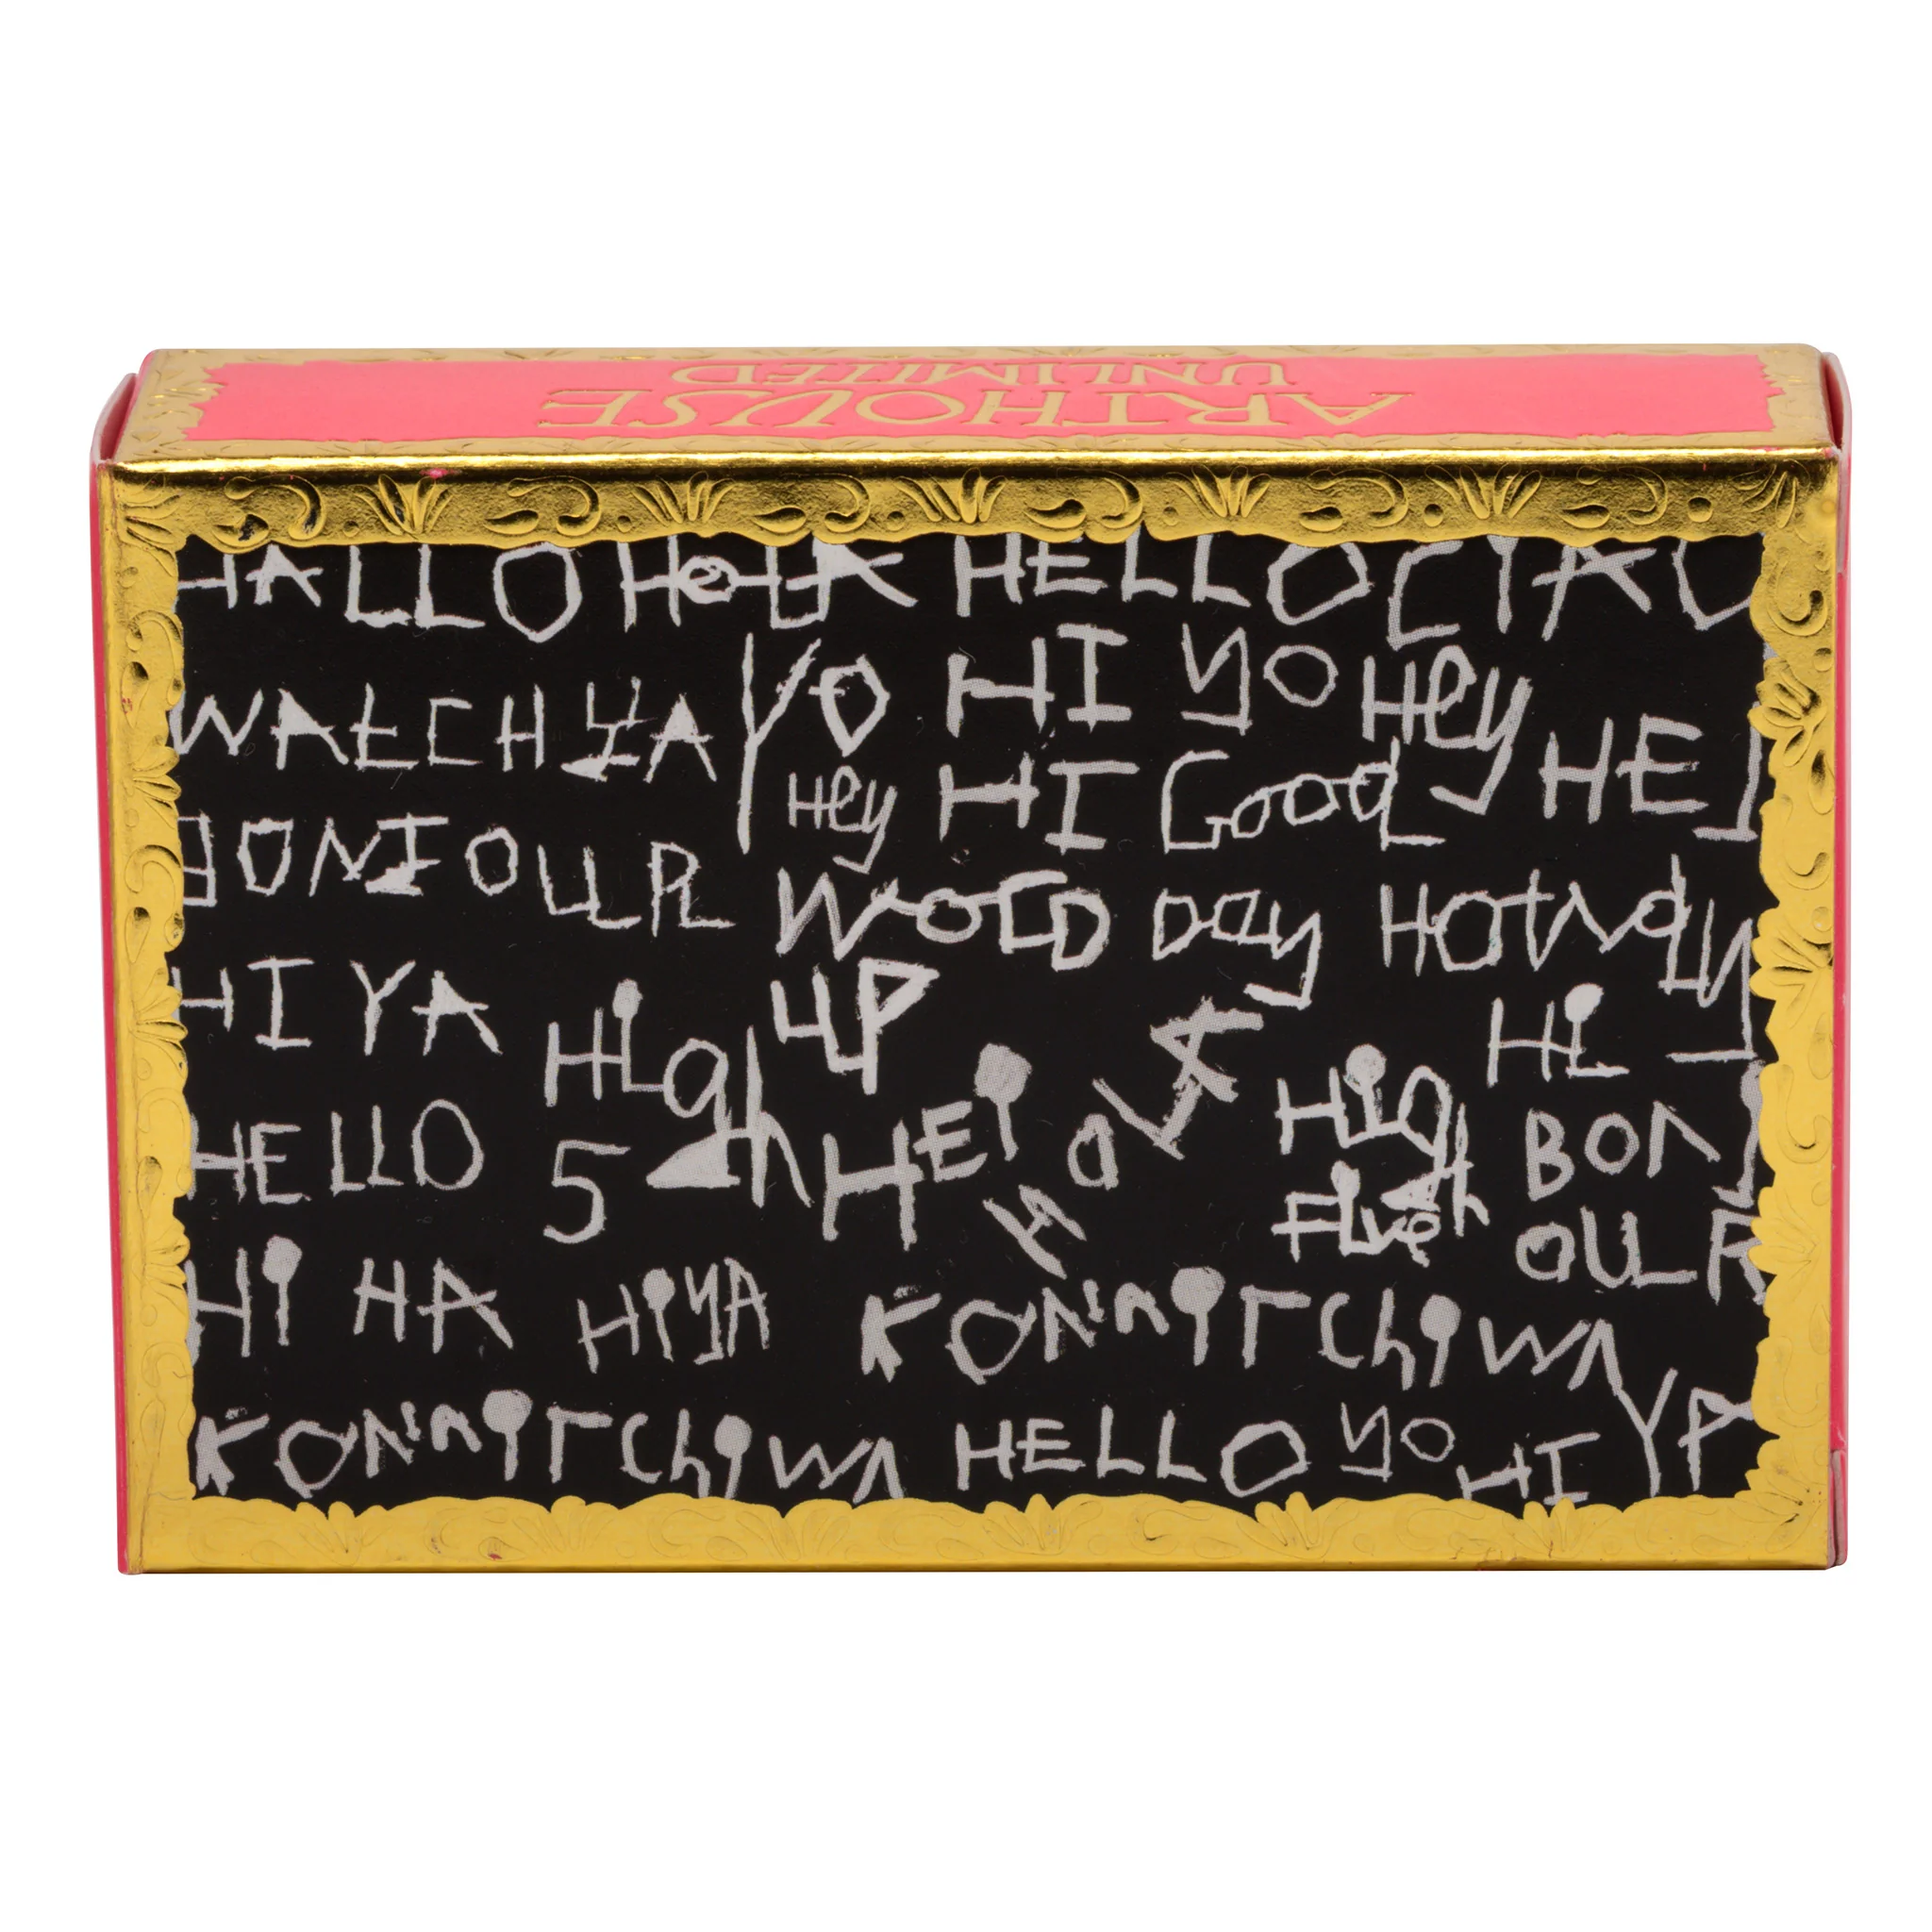 ARTHOUSE
UNLIMITED
HALLO HOLA HELLO CIAO
WATCHYA YO HI YO Hey
Hey HI Good HEJ
BONJOUR WORD Day HOWdy
HIYA High UP Hi
HELLO 5 HEi HOLA High BONJ
Five OUR
Hi HA HiYA KONNiTChiWA
KONNiTChiWA HELLO YO HI YA